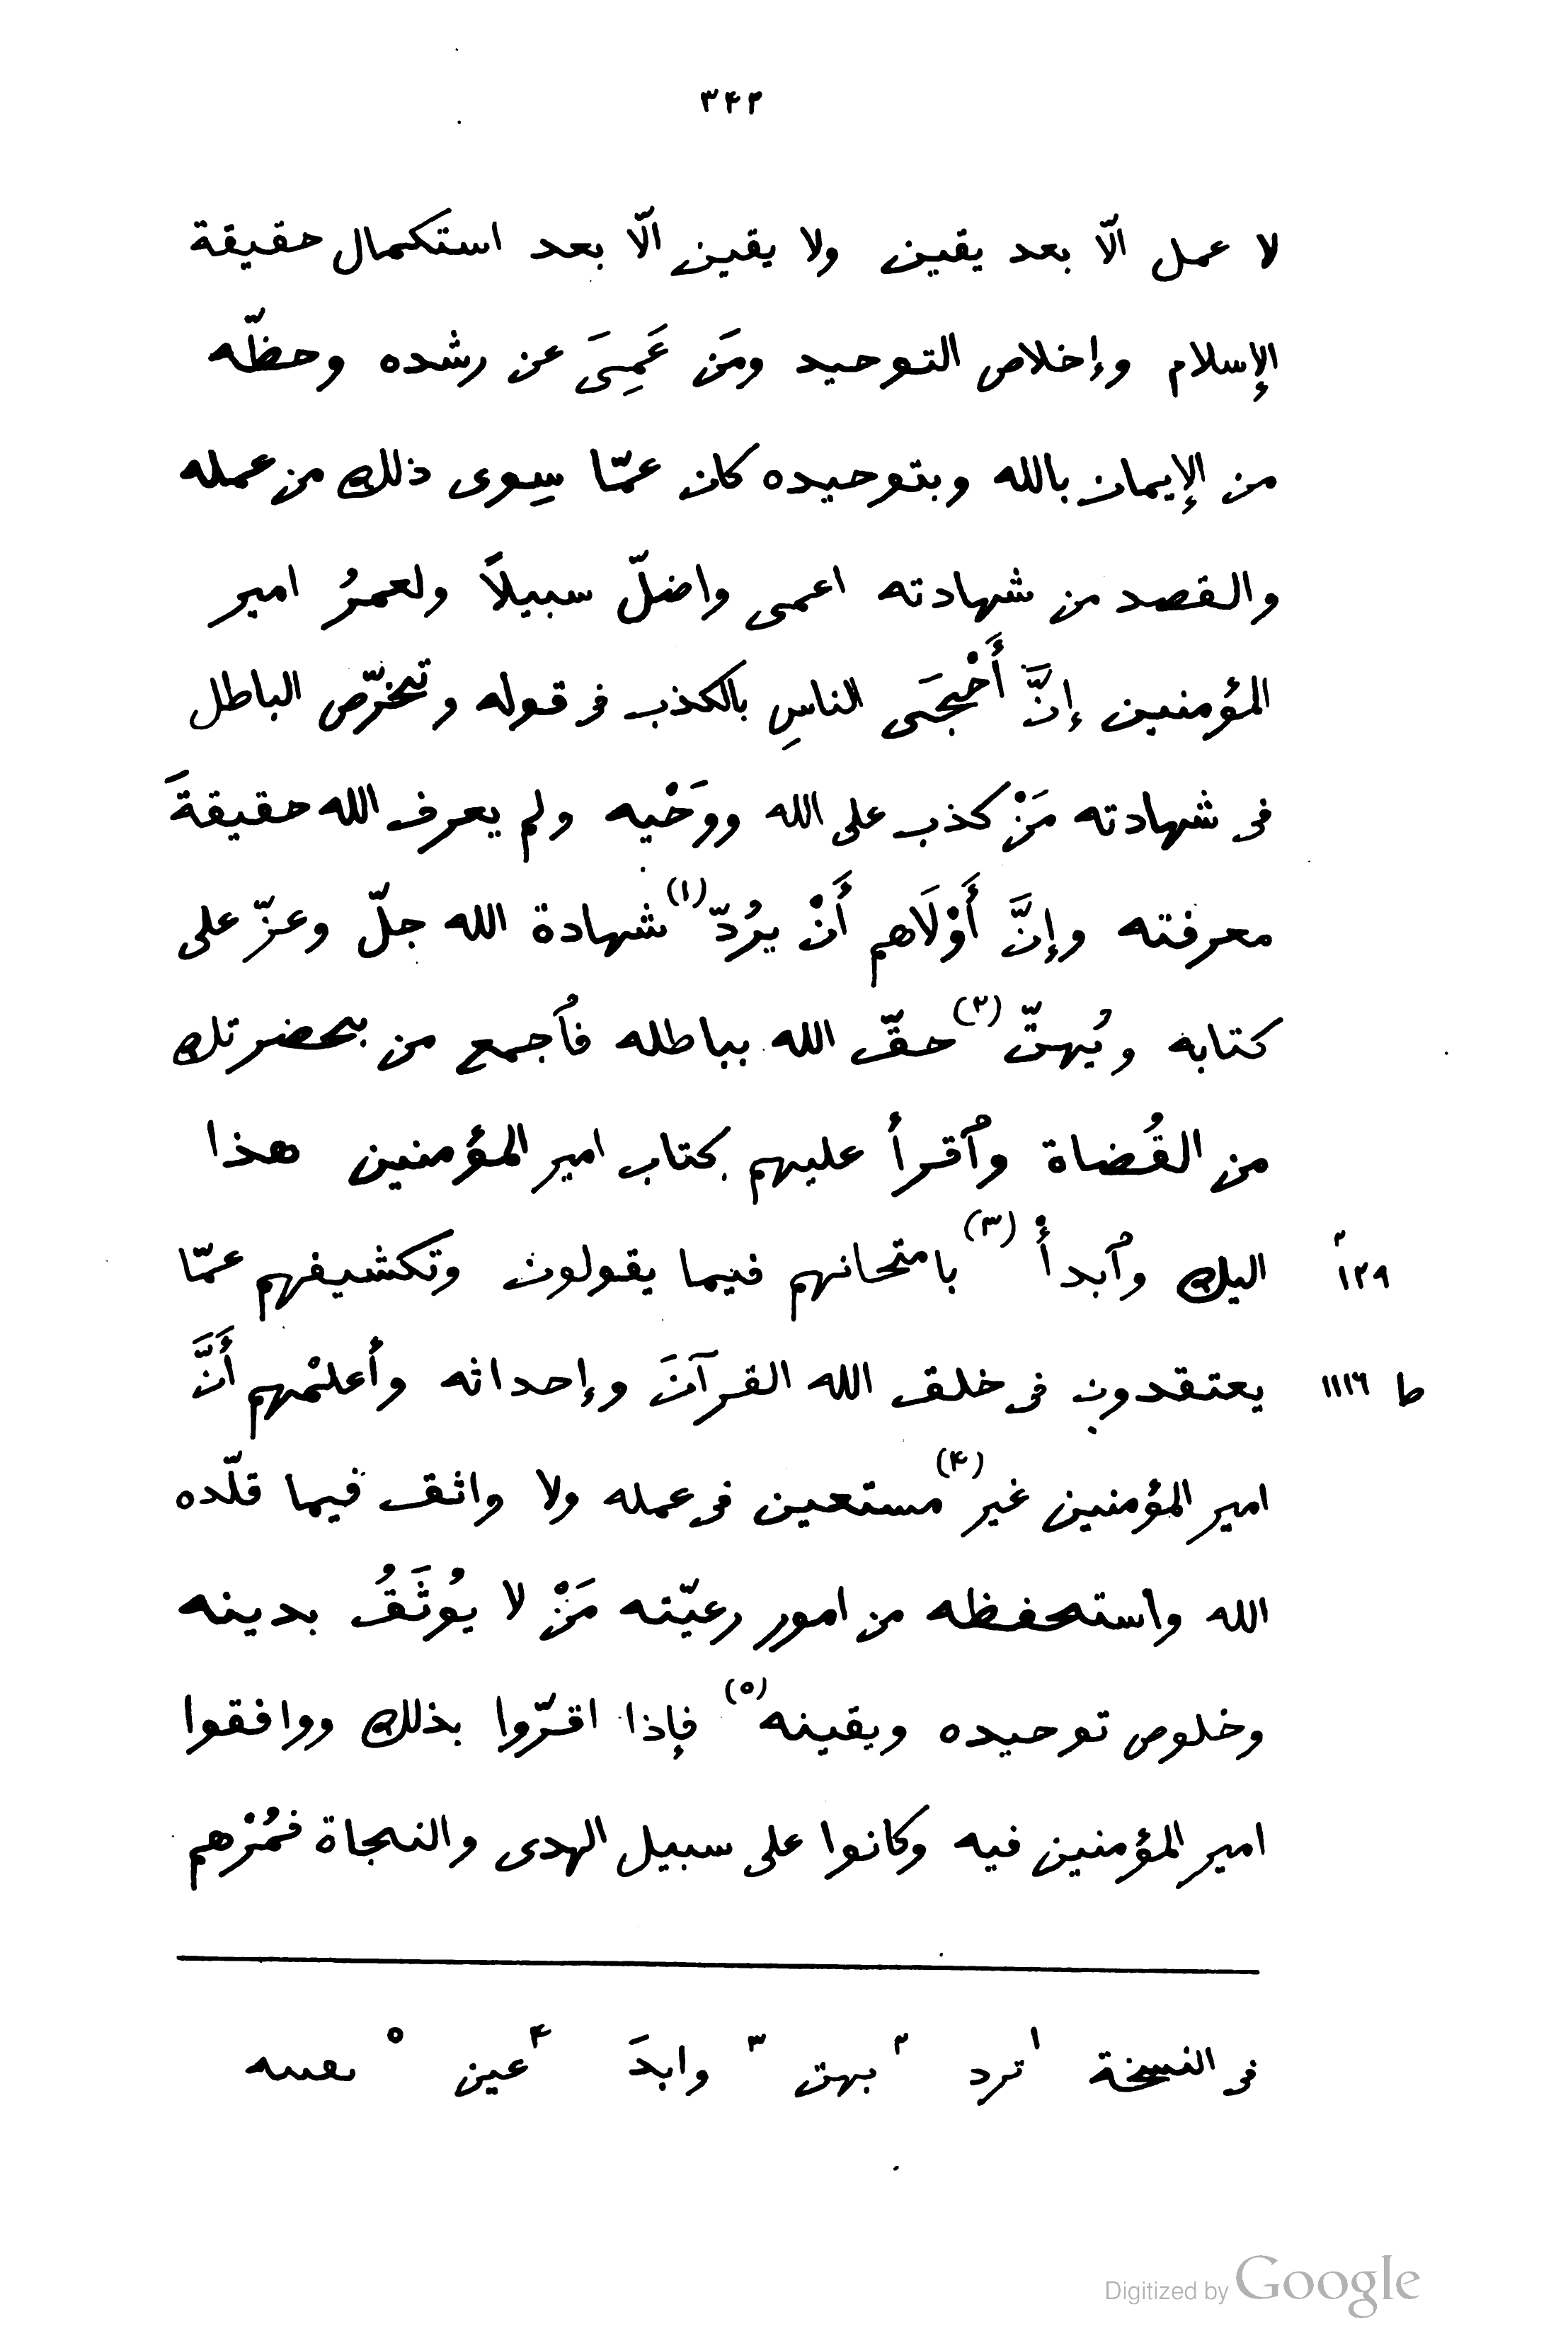 ٣٤٢
لا عمل الّا بعد يقين ولا يقين الّا بعد استكمال حقيقة
الإسلام وإخلاص التوحيد ومَن عَمِىَ عن رشده وحظّه
من الإيمان بالله وبتوحيده كان عمّا سِوى ذلك من عمله
والقصد من شهادته اعمى واضلّ سبيلاً ولعمرُ امير
المؤمنين إنَّ أَحْجَى الناسِ بالكذب فى قوله وتخرّص الباطل
فى شهادته مَنْ كذب على الله ووَحْيه ولم يعرف الله حقيقةَ
معرفته وإنَّ أَوْلَاهم أَنْ يرُدّ (١) شهادة الله جلّ وعزّ على
كتابه ويُبهتّ (٢) حقّ الله بباطله فٱجمع من بحضرتك
من القُضاة وٱقرأ عليهم كتاب امير المؤمنين هذا
اليك وٱبدأْ (٣) بامتحانهم فيما يقولون وتكشيفهم عمّا ١٢٩٢
يعتقدون فى خلق الله القرآنَ وإحداثه وأعلمْهم أَنَّ ط ١١١٦
امير المؤمنين غير (٤) مستعين فى عمله ولا واثق فيما قلّده
الله واستحفظه من امور رعيّته مَنْ لا يُوثَقُ بدينه
وخلوص توحيده ويقينه (٥) فإذا اقرّوا بذلك ووافقوا
امير المؤمنين فيه وكانوا على سبيل الهدى والنجاة فمُرْهم
فى النسخة ١ ترد ٢ بهت ٣ وابدَ ٤ عين ٥
Digitized by Google